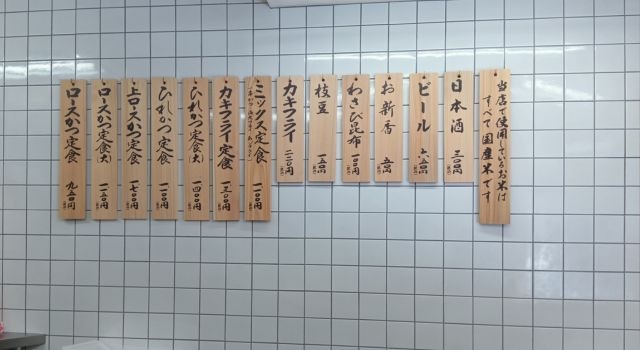 当店で使用しているお米は
すべて国産米です
日本酒 三〇〇円
ビール 六五〇円
お新香 五〇円
わさび昆布 一〇〇円
枝豆 一五〇円
カキフライ 二二〇円
ミックス定食
カキフライ定食 一三〇〇円
ひれかつ定食(大) 一四〇〇円
ひれかつ定食 一一〇〇円
上ロースかつ定食 一七〇〇円
ロースかつ定食(大) 一一五〇円
ロースかつ定食 九五〇円